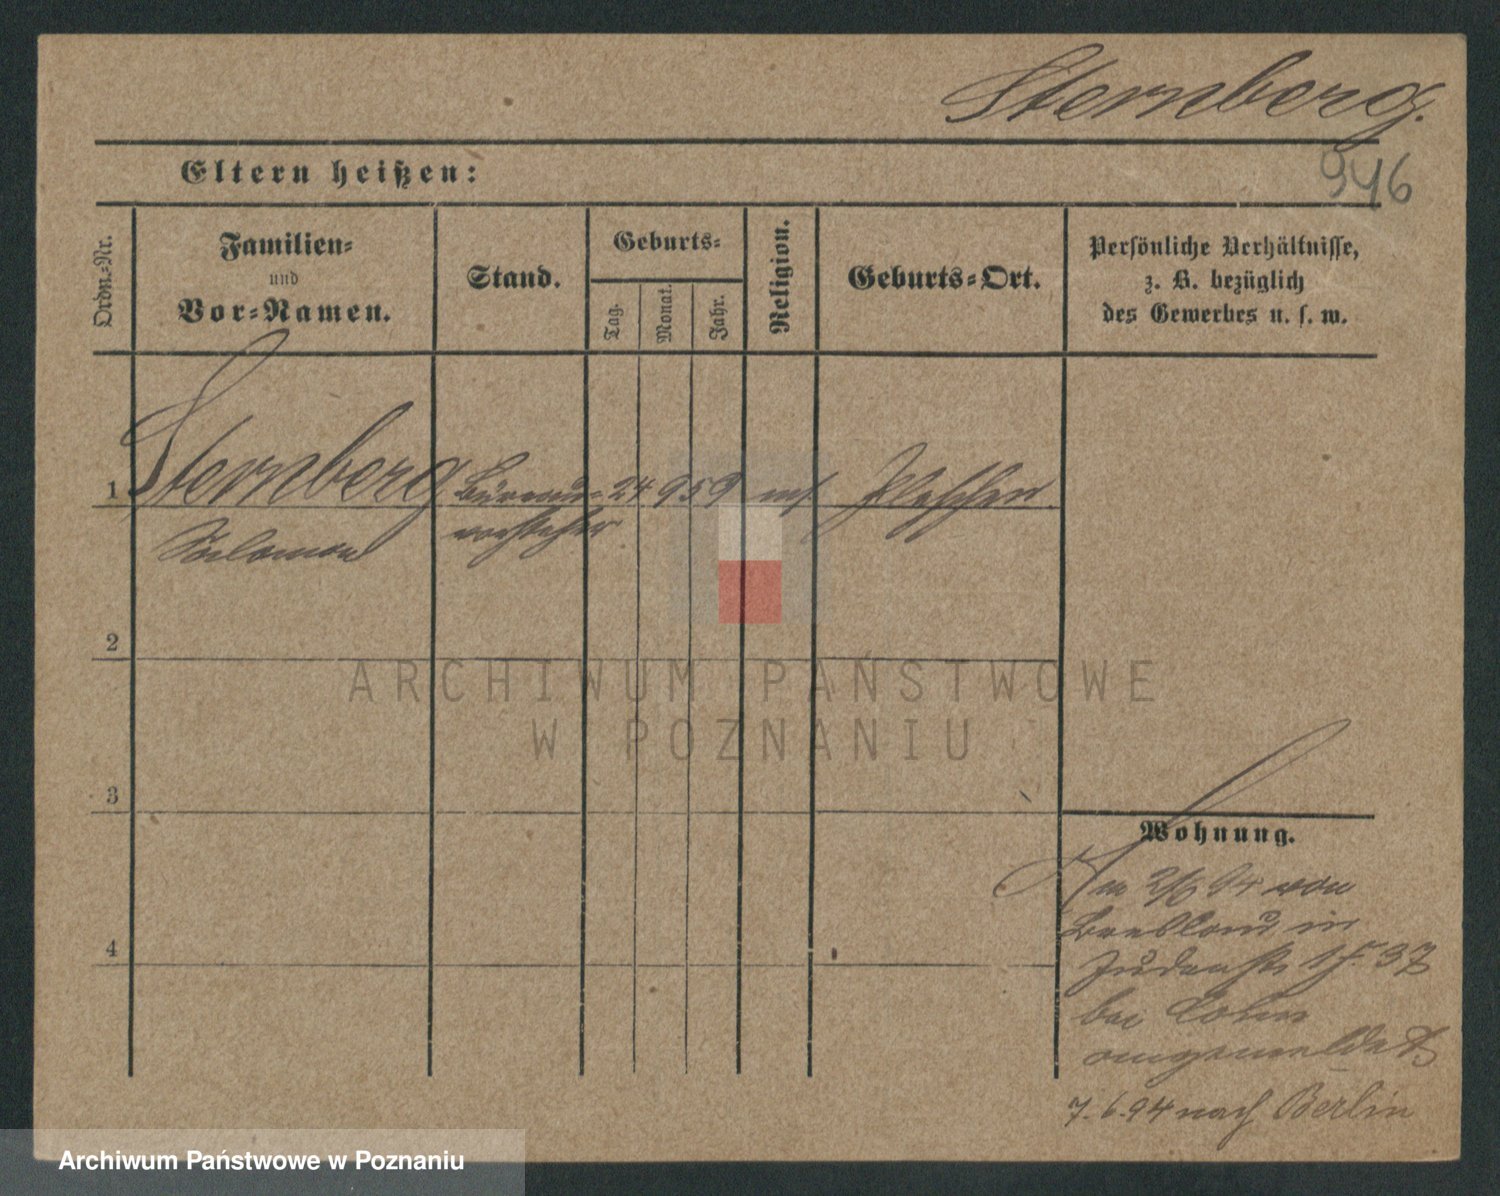 Sternberg.
946
Eltern heißen:
Ordn.-Nr.
Familien-
und
Vor-Namen.
Stand.
Geburts-
Tag.
Monat.
Jahr.
Religion.
Geburts-Ort.
Persönliche Verhältnisse,
z. B. bezüglich
des Gewerbes u. s. w.
1 Sternberg Bureau- 24 9 59 mos. Pleschen
Salomon vorsteher
2
3
4
Wohnung.
Am 2/6 94 von
Breslau in
Judenstr. 37
bei Cohn
angemeldet
7.6.94 nach Berlin
ARCHIWUM PAŃSTWOWE
W POZNANIU
Archiwum Państwowe w Poznaniu